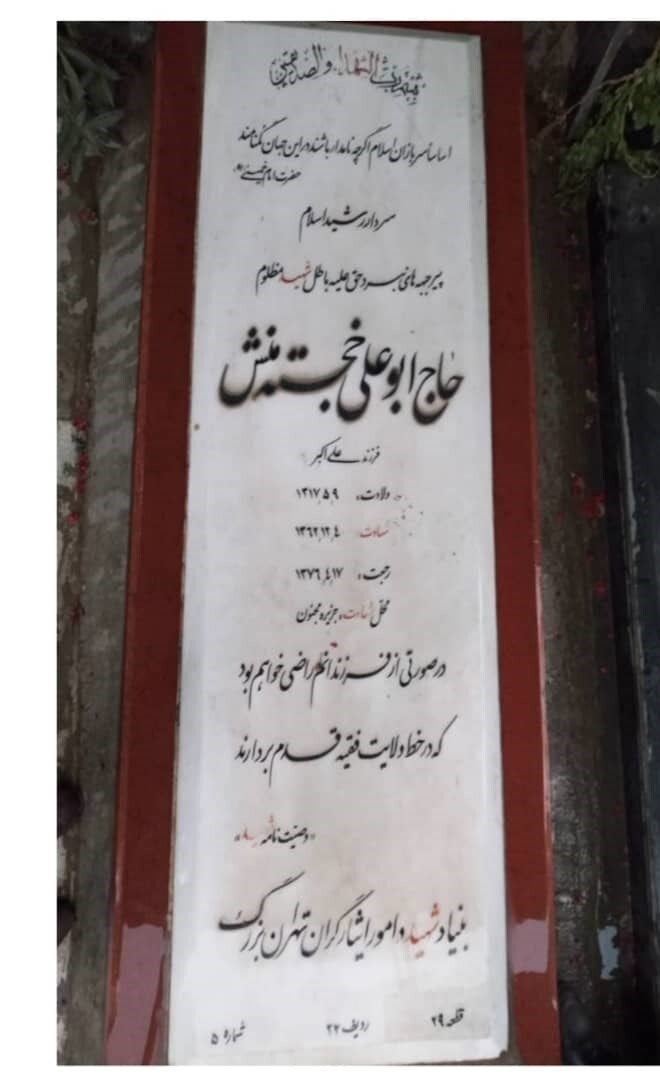 بسم رب الشهداء والصدیقین
اساسا سربازان اسلام اگرچه نامدار باشند در این جهان گمنامند
حضرت امام خمینی ره
سردار رشید اسلام
پیر جبهه های نبرد حق علیه باطل شهید مظلوم
حاج ابوعلی خجسته منش
فرزند علی اکبر
ولادت: ۱۳۱۷,۵,۹
شهادت: ۱۳۶۲,۱۲,۴
رجعت: ۱۳۷۶,۴,۱۷
محل شهادت: جزیره مجنون
در صورتی از فرزندانم راضی خواهم بود
که در خط ولایت فقیه قدم بردارند
«وصیت نامه شهید»
بنیاد شهید و امور ایثارگران تهران بزرگ
قطعه ۲۹ ردیف ۲۲ شماره ۵